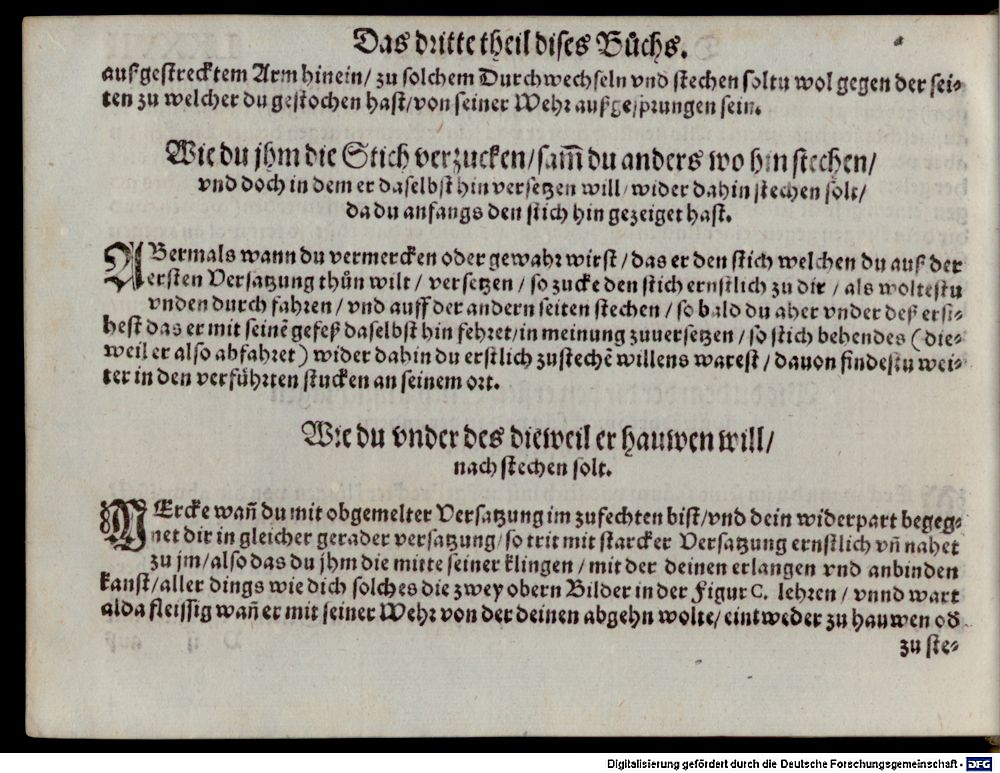 Das dritte theil dises Bůchs.
außgestrecktem Arm hinein/ zu solchem Durchwechseln vnd stechen soltu wol gegen der sei-
ten zu welcher du gestochen hast/ von seiner Wehr außgesprungen sein.
Wie du jhm die Stich verzucken/ sam̃ du anders wo hin stechen/
vnd doch in dem er daselbst hin versetzen will/ wider dahin stechen solt/
da du anfangs den stich hin gezeiget hast.
ABermals wann du vermercken oder gewahr wirst/ das er den stich welchen du auß der
ersten Versatzung thůn wilt/ versetzen/ so zucke den stich ernstlich zu dir/ als woltestu
vnden durch fahren/ vnd auff der andern seiten stechen/ so bald du aber vnder deß ersi-
hest das er mit seinẽ gefeß daselbst hin fehret/ in meinung zuuersetzen/ so stich behendes (die-
weil er also abfahret) wider dahin du erstlich zustechẽ willens warest/ dauon findestu wei-
ter in den verfůhrten stucken an seinem ort.
Wie du vnder des dieweil er hauwen will/
nach stechen solt.
MErcke wañ du mit obgemelter Versatzung im zufechten bist/ vnd dein widerpart begeg-
net dir in gleicher gerader versatzung/ so trit mit starcker Versatzung ernstlich vñ nahet
zu jm/ also das du jhm die mitte seiner klingen/ mit der deinen erlangen vnd anbinden
kanst/ aller dings wie dich solches die zwey obern Bilder in der Figur C. lehren/ vnnd wart
alda fleissig wañ er mit seiner Wehr von der deinen abgehn wolte/ eintweder zu hauwen od̃
zu ste-
Digitalisierung gefördert durch die Deutsche Forschungsgemeinschaft - DFG